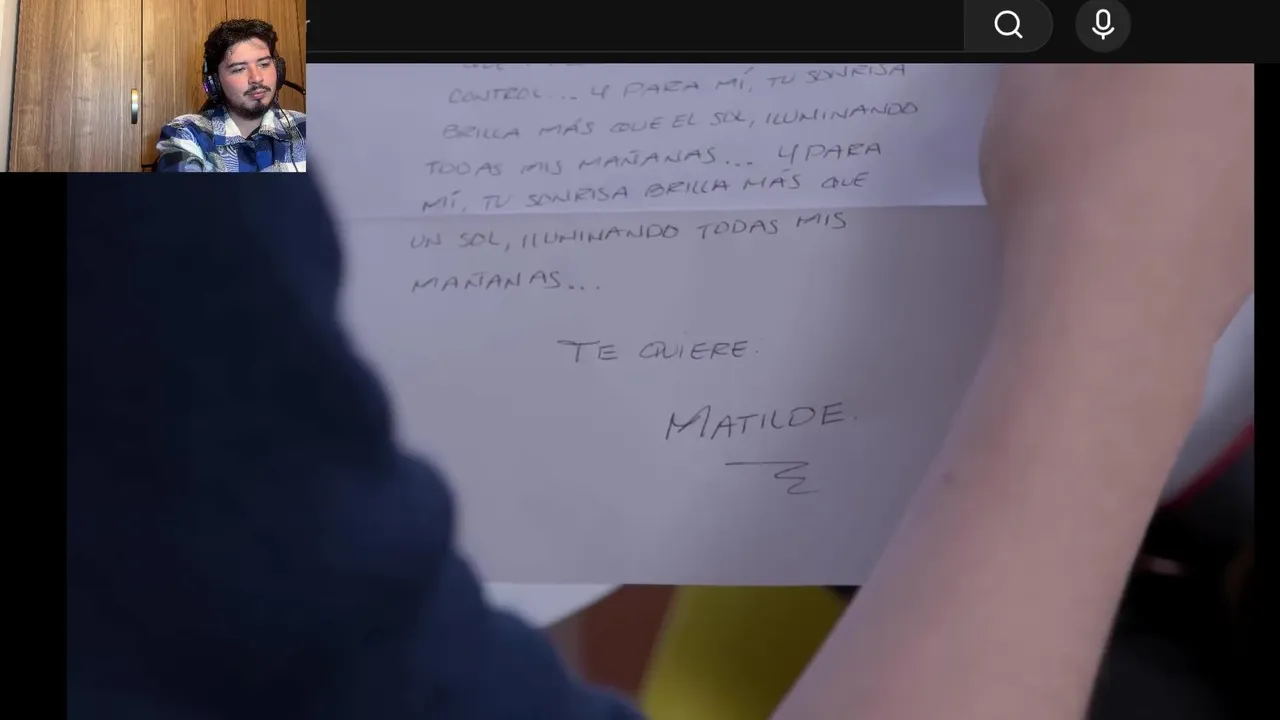 CONTROL... Y PARA MÍ, TU SONRISA
BRILLA MÁS QUE EL SOL, ILUMINANDO
TODAS MIS MAÑANAS... Y PARA
MÍ, TU SONRISA BRILLA MÁS QUE
UN SOL, ILUMINANDO TODAS MIS
MAÑANAS...
TE QUIERE.
MATILDE.